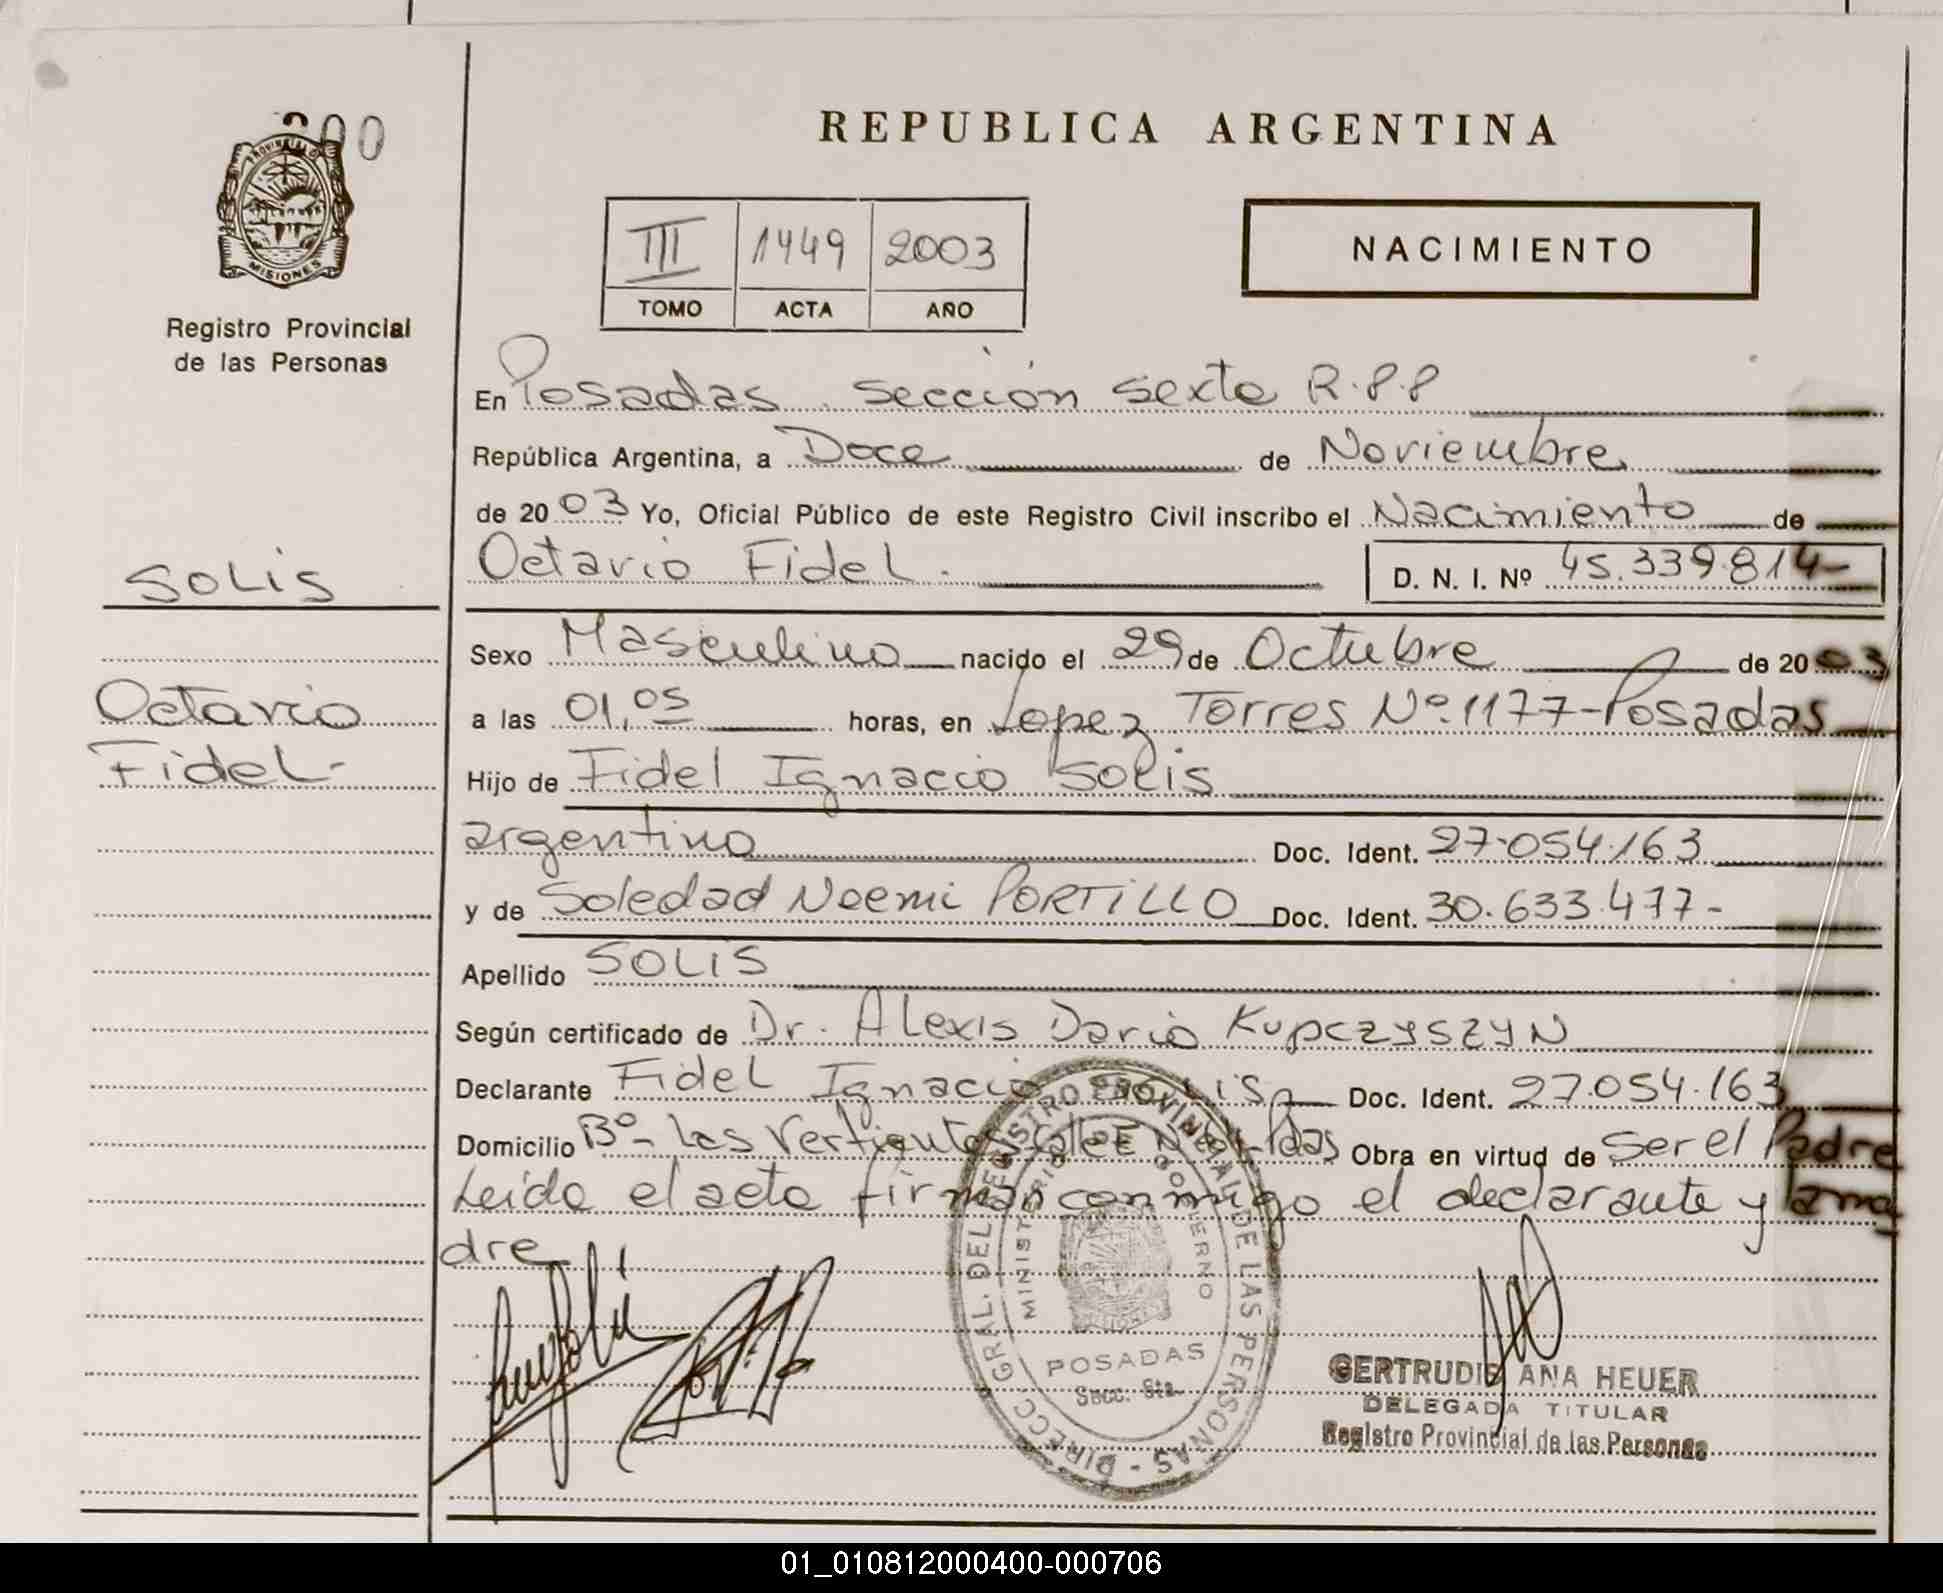 200
PROVINCIA
MISIONES
Registro Provincial
de las Personas
REPUBLICA ARGENTINA
III 1449 2003
TOMO ACTA AÑO
NACIMIENTO
En Posadas. sección sexta R.P.P
República Argentina, a Doce de Noviembre
de 2003 Yo, Oficial Público de este Registro Civil inscribo el Nacimiento de
Octavio Fidel. D. N. I. Nº 45.339.814-
SOLIS
Octavio
Fidel-
Sexo Masculino nacido el 29 de Octubre de 2003
a las 01,05 horas, en Lopez Torres Nº 1177-Posadas
Hijo de Fidel Ignacio Solis
argentino Doc. Ident. 27.054.163
y de Soledad Noemi PORTILLO Doc. Ident. 30.633.477-
Apellido SOLIS
Según certificado de Dr. Alexis Dario KupczyszyN
Declarante Fidel Ignacio Solis Doc. Ident. 27.054.163
Domicilio Bº- Las Vertientes Calle E Pdas Obra en virtud de Ser el Padre
Leida el acta firman conmigo el declarante y la ma
dre
DIRECC. GRAL. DEL REGISTRO PROVINCIAL DE LAS PERSONAS -
MINISTERIO DE GOBIERNO
POSADAS
Secc. 6ta.
GERTRUDIS ANA HEUER
DELEGADA TITULAR
Registro Provincial de las Personas
01_010812000400-000706